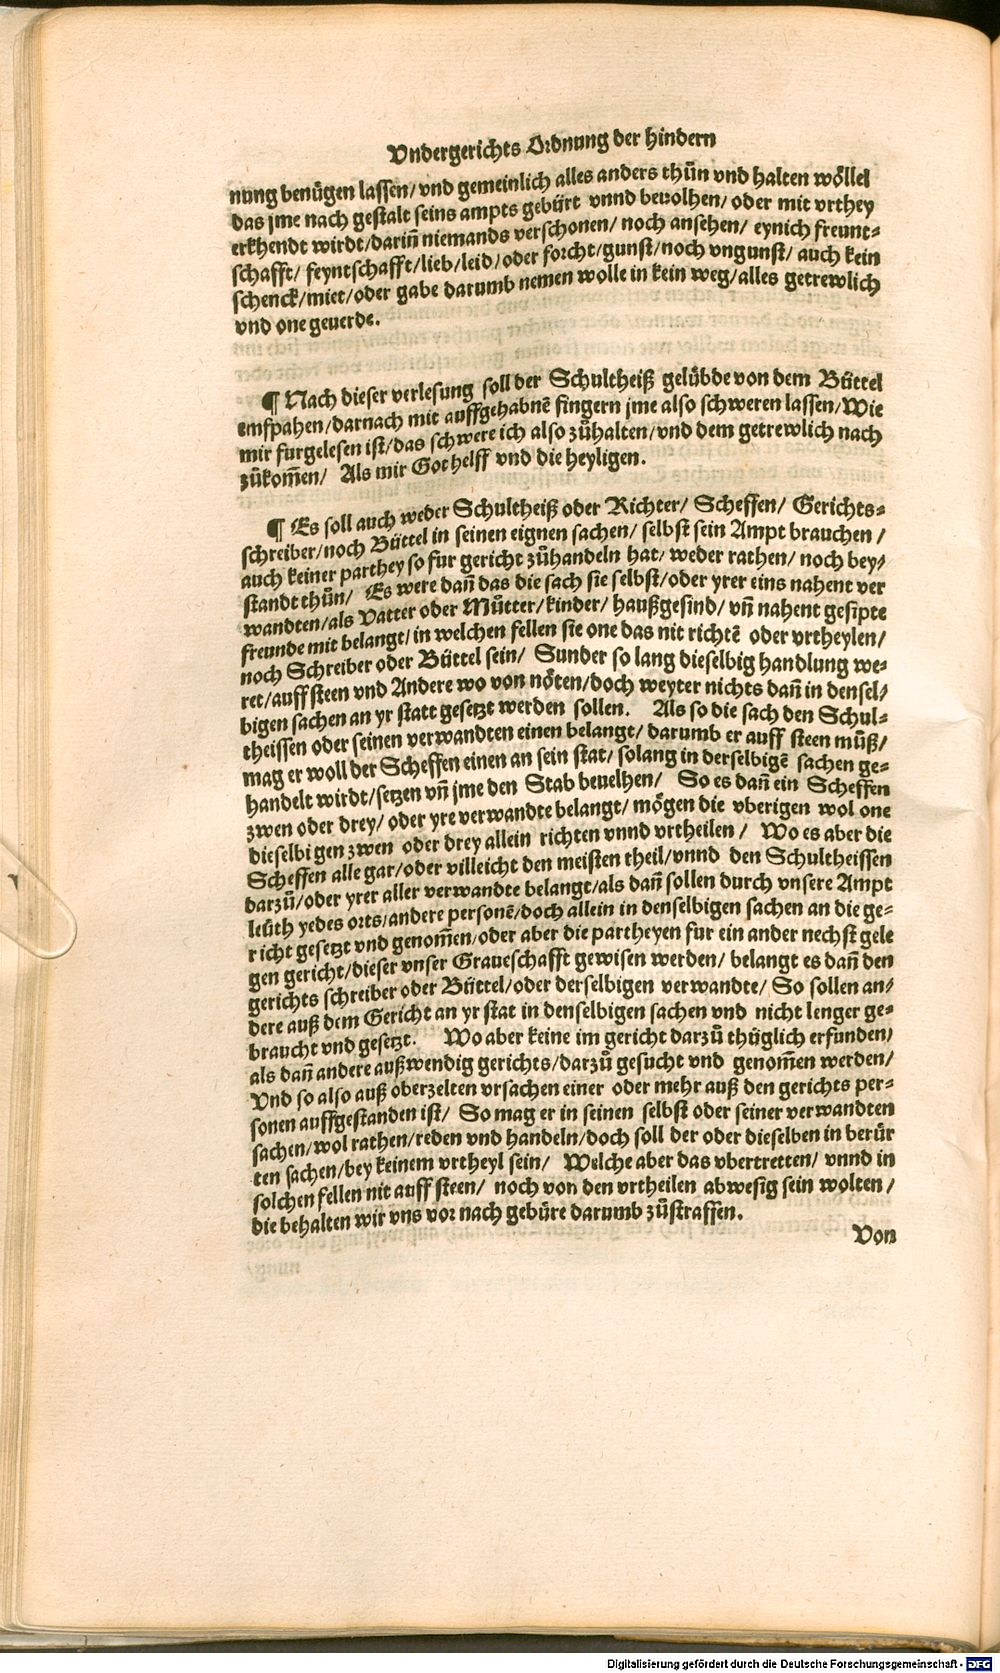 Vndergerichts Ordnung der hindern
nung benügen lassen/ vnd gemeinlich alles anders thůn vnd halten wöllel
das jme nach gestalt seins ampts gebürt vnnd beuolhen/ oder mit vrthey
erkhendt wirdt/darin̄ niemands verschonen/ noch ansehen/ eynich freunt⸗
schafft/ feyntschafft/lieb/leid/oder forcht/gunst/noch vngunst/ auch kein
schenck/miet/oder gabe darumb nemen wolle in kein weg/alles getrewlich
vnd one geuerde.
¶ Nach dieser verlesung soll der Schultheiß gelübde von dem Büttel
emfpahen/darnach mit auffgehabnē fingern jme also schweren lassen/Wie
mir furgelesen ist/das schwere ich also zůhalten/vnd dem getrewlich nach
zůkom̄en/ Als mir Got helff vnd die heyligen.
¶ Es soll auch weder Schultheiß oder Richter/ Scheffen/ Gerichts⸗
schreiber/noch Büttel in seinen eignen sachen/ selbst sein Ampt brauchen/
auch keiner parthey so fur gericht zůhandeln hat/ weder rathen/ noch bey/
standt thůn/ Es were dan̄ das die sach sie selbst/oder yrer eins nahent ver
wandten/als Vatter oder Můtter/kinder/ haußgesind/ vn̄ nahent gesipte
freunde mit belangt/ in welchen fellen sie one das nit richtē oder vrtheylen/
noch Schreiber oder Büttel sein/ Sunder so lang dieselbig handlung we⸗
ret/auff steen vnd Andere wo von nöten/doch weyter nichts dan̄ in densel/
bigen sachen an yr statt gesetzt werden sollen. Als so die sach den Schul⸗
theissen oder seinen verwandten einen belangt/ darumb er auff steen můß/
mag er woll der Scheffen einen an sein stat/ solang in derselbigē sachen ge⸗
handelt wirdt/setzen vn̄ jme den Stab beuelhen/ So es dan̄ ein Scheffen
zwen oder drey/ oder yre verwandte belangt/ mögen die vberigen wol one
dieselbi gen zwen oder drey allein richten vnnd vrtheilen/ Wo es aber die
Scheffen alle gar/oder villeicht den meisten theil/vnnd den Schultheissen
darzů/oder yrer aller verwandte belangt/als dan̄ sollen durch vnsere Ampt
leüth yedes orts/andere personē/doch allein in denselbigen sachen an die ge⸗
richt gesetzt vnd genom̄en/oder aber die partheyen fur ein ander nechst gele
gen gericht/dieser vnser Graueschafft gewisen werden/ belangt es dan̄ den
gerichts schreiber oder Büttel/oder derselbigen verwandte/ So sollen an/
dere auß dem Gericht an yr stat in denselbigen sachen vnd nicht lenger ge⸗
braucht vnd gesetzt. Wo aber keine im gericht darzů thüglich erfunden/
als dan̄ andere außwendig gerichts/darzů gesucht vnd genom̄en werden/
Vnd so also auß oberzelten vrsachen einer oder mehr auß den gerichts per⸗
sonen auffgestanden ist/ So mag er in seinen selbst oder seiner verwandten
sachen/wol rathen/reden vnd handeln/doch soll der oder dieselben in berür
ten sachen/bey keinem vrtheyl sein/ Welche aber das vbertretten/ vnnd in
solchen fellen nit auff steen/ noch von den vrtheilen abwesig sein wolten/
die behalten wir vns vor nach gebüre darumb zůstraffen.
Von
Digitalisierung gefördert durch die Deutsche Forschungsgemeinschaft - DFG